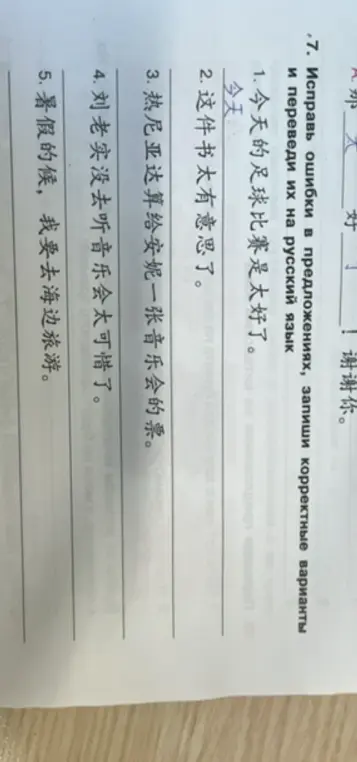 А. 那 天 好 了 ! 谢谢你。
7. Исправь ошибки в предложениях, запиши корректные варианты
и переведи их на русский язык
1. 今天的足球比赛是太好了。
今天
2. 这件书太有意思了。
3. 热尼亚达算给安妮一张音乐会的票。
4. 刘老实没去听音乐会太可惜了。
5. 暑假的候，我要去海边旅游。